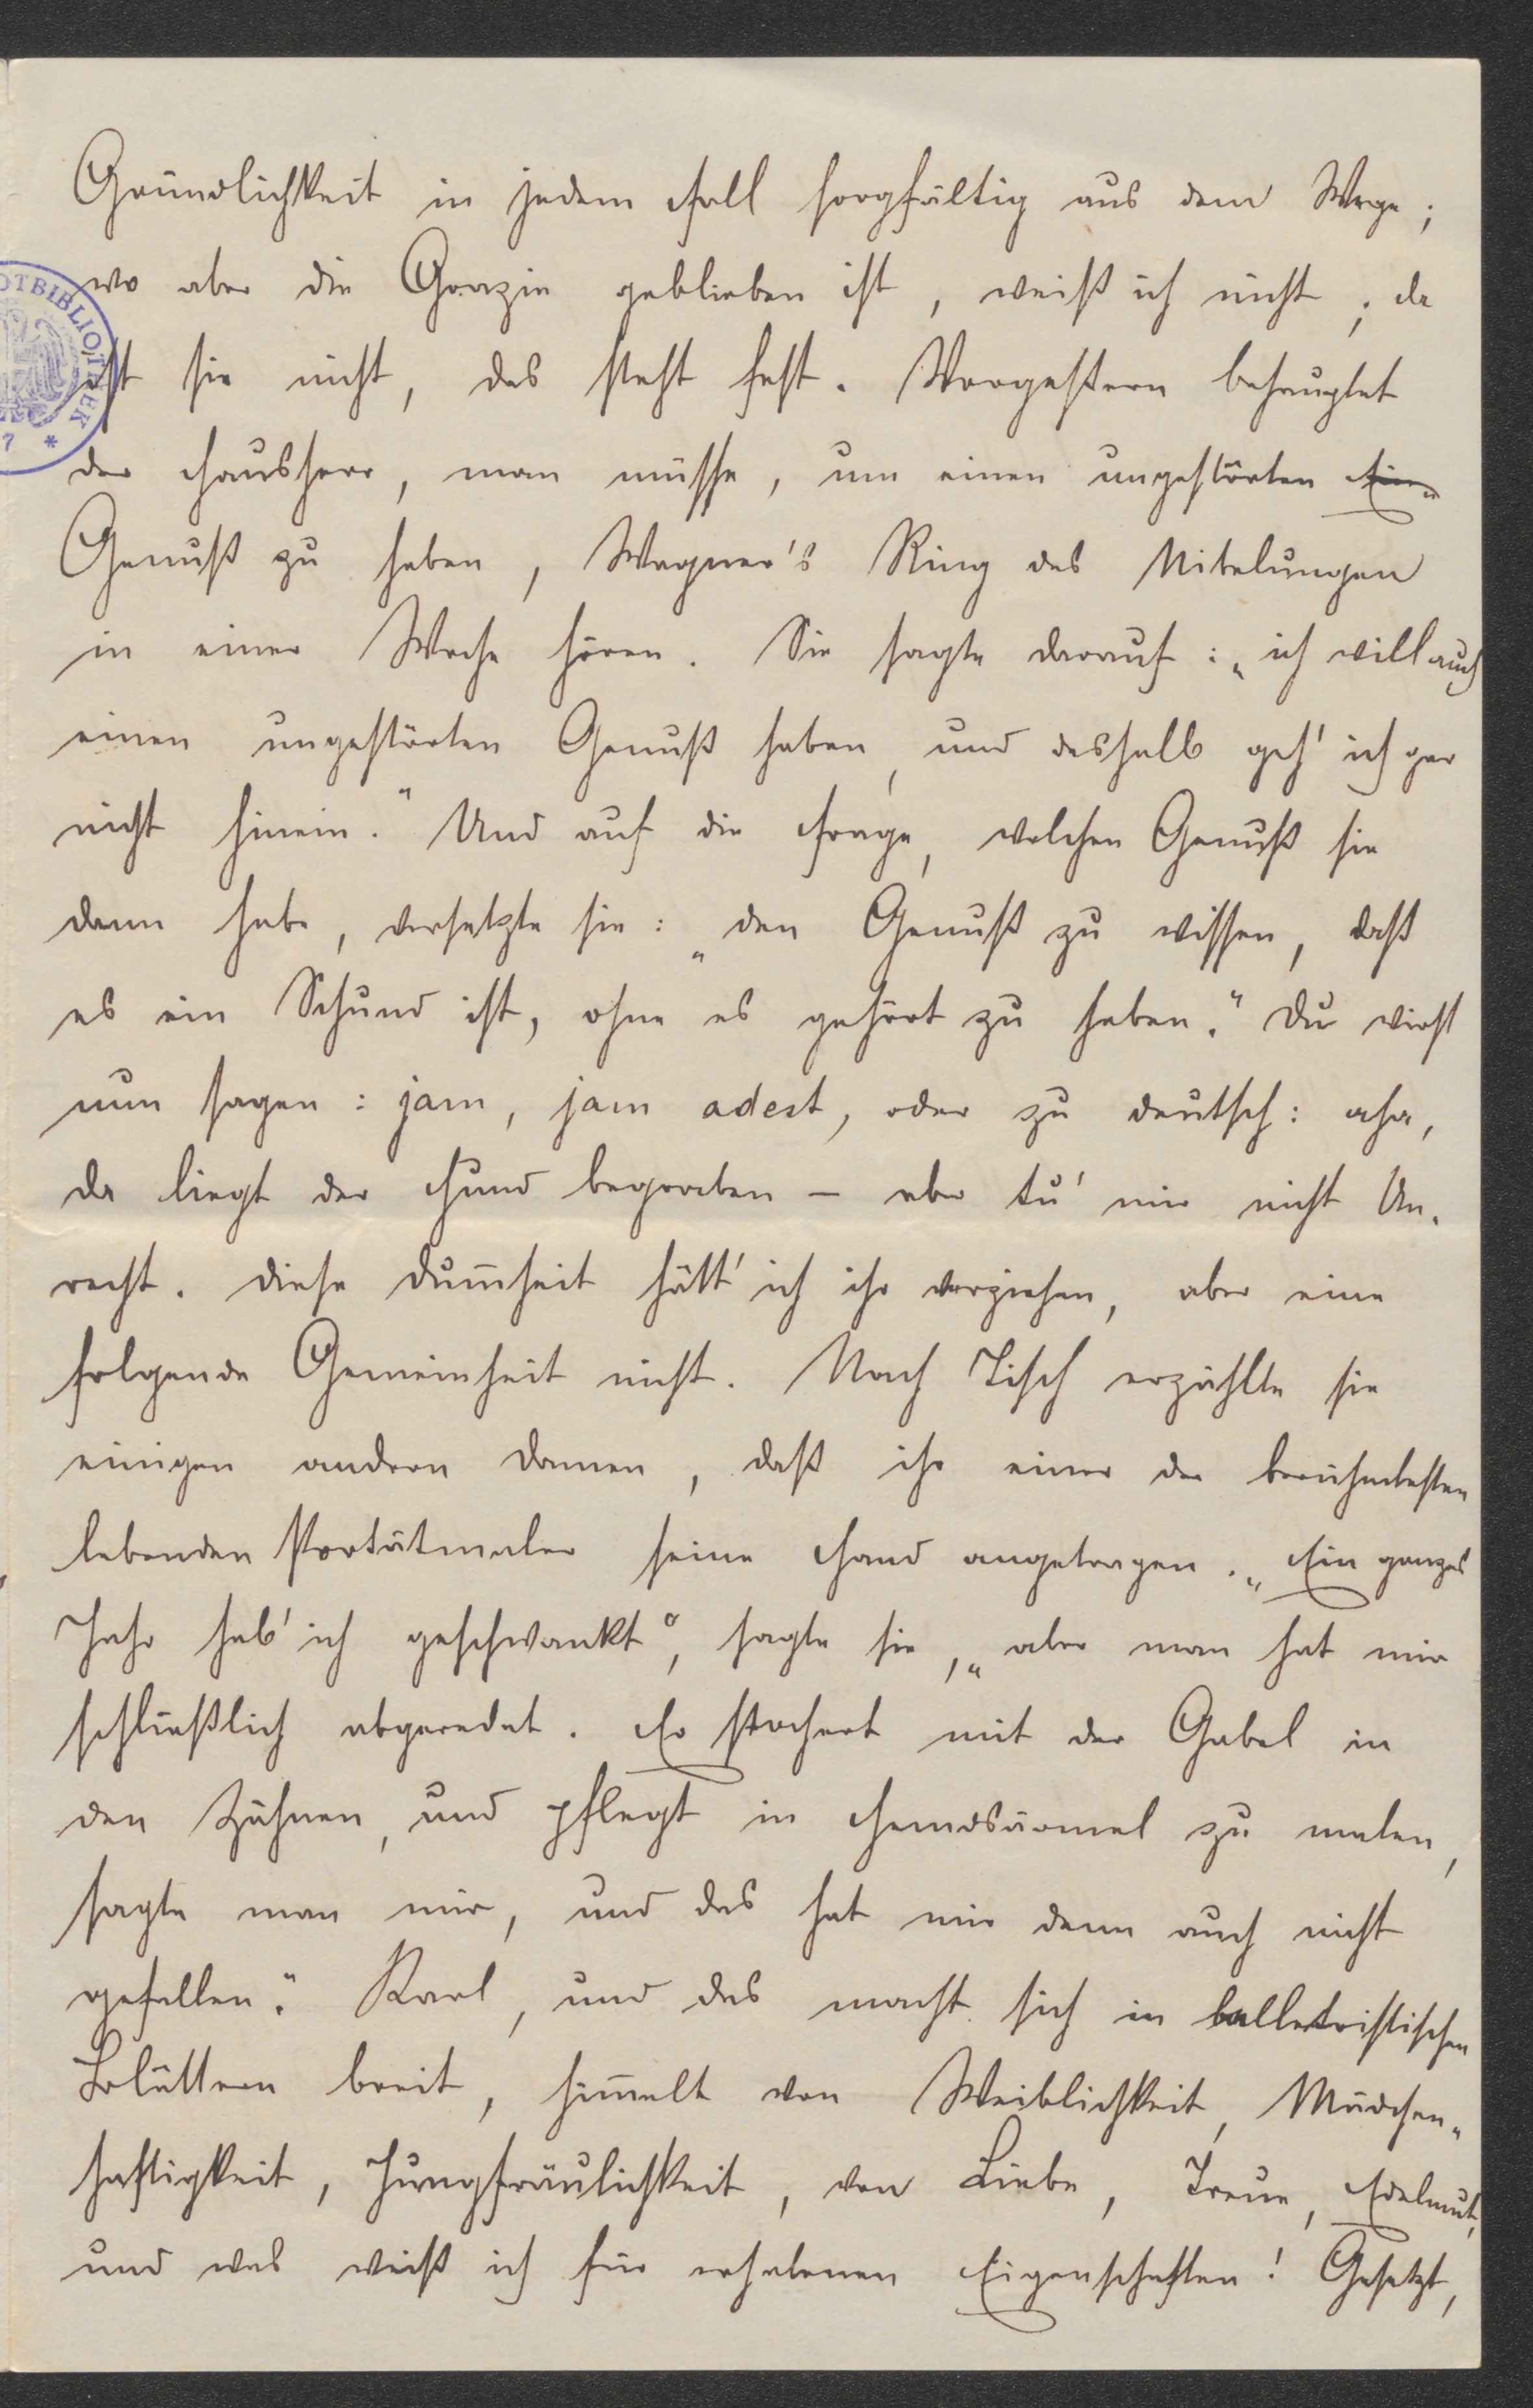 Gründlichkeit in jedem Fall sorgfältig aus dem Wege;
wo aber die Grazie geblieben ist, weiß ich nicht; da
ist sie nicht, das steht fest. Vorgestern behauptet
der Hausherr, man müsse, um einen ungestörten Ein-
Genuß zu haben, Wagner's Ring des Nibelungen
in einer Woche hören. Sie sagte darauf: „ich will auch
einen ungestörten Genuß haben, und deshalb geh' ich gar
nicht hinein." Und auf die Frage, welchen Genuß sie
dann habe, versetzte sie: „den Genuß zu wissen, daß
es ein Schund ist, ohne es gehört zu haben." Du wirst
nun sagen: jam, jam adest, oder zu deutsch: aha,
da liegt der Hund begraben – aber tu' mir nicht Un-
recht. Diese Dum̅heit hätt' ich ihr verziehen, aber eine
folgende Gemeinheit nicht. Nach Tisch erzählte sie
einigen andern Damen, daß ihr einer der berühmtesten
lebenden Portätmaler seine Hand angetragen. „Ein ganzes
Jahr hab' ich geschwankt", sagte sie, „aber man hat mir
schließlich abgeredet. Er stochert mit der Gabel in
den Zähnen, und pflegt in Hemdsärmel zu malen,
sagte man mir, und das hat mir denn auch nicht
gefallen." Karl, und das macht sich in belletristischen
Blättern breit, him̅elt von Weiblichkeit, Mädchen-
haftigkeit, Jungfräulichkeit, von Liebe, Treue, Edelmut,
und was weiß ich für erhabenen Eigenschaften! Gesetzt,
OTBIBLIOTHEK
7 *